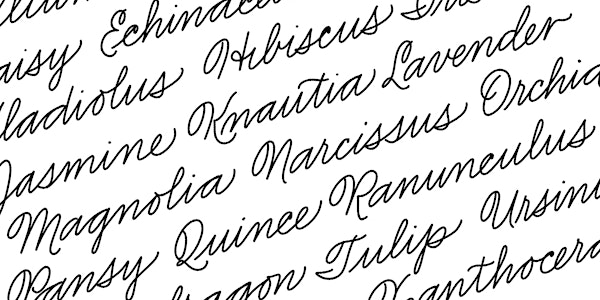 aisy Echinacea
ladiolus Hibiscus Iris
Jasmine Knautia Lavender
Magnolia Narcissus Orchid
Pansy Quince Ranunculus
dragon Tulip Ursini
Xanthocera